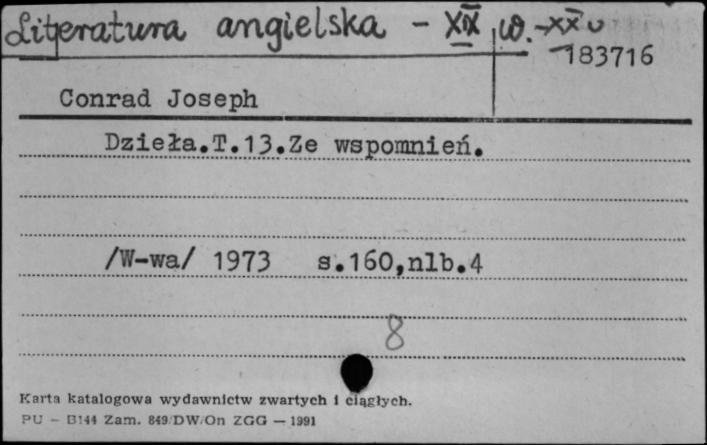 Literatura angielska - XIX w. - XX w
183716
Conrad Joseph
Dzieła.T.13.Ze wspomnień.
/W-wa/ 1973 s.160,nlb.4
8
Karta katalogowa wydawnictw zwartych i ciągłych.
PU - B144 Zam. 849/DW/On ZGG - 1991